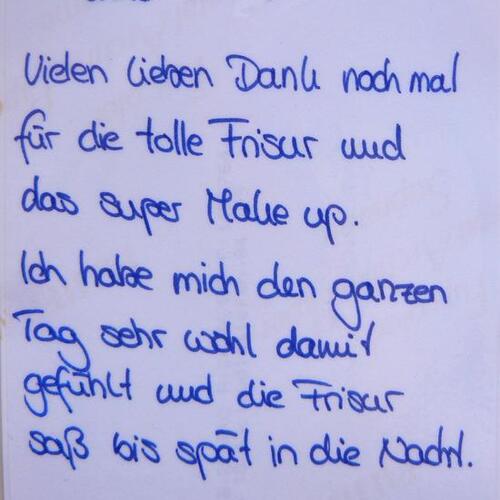 Vielen lieben Dank noch mal
für die tolle Frisur und
das super Make up.
Ich habe mich den ganzen
Tag sehr wohl damit
gefühlt und die Frisur
saß bis spät in die Nacht.